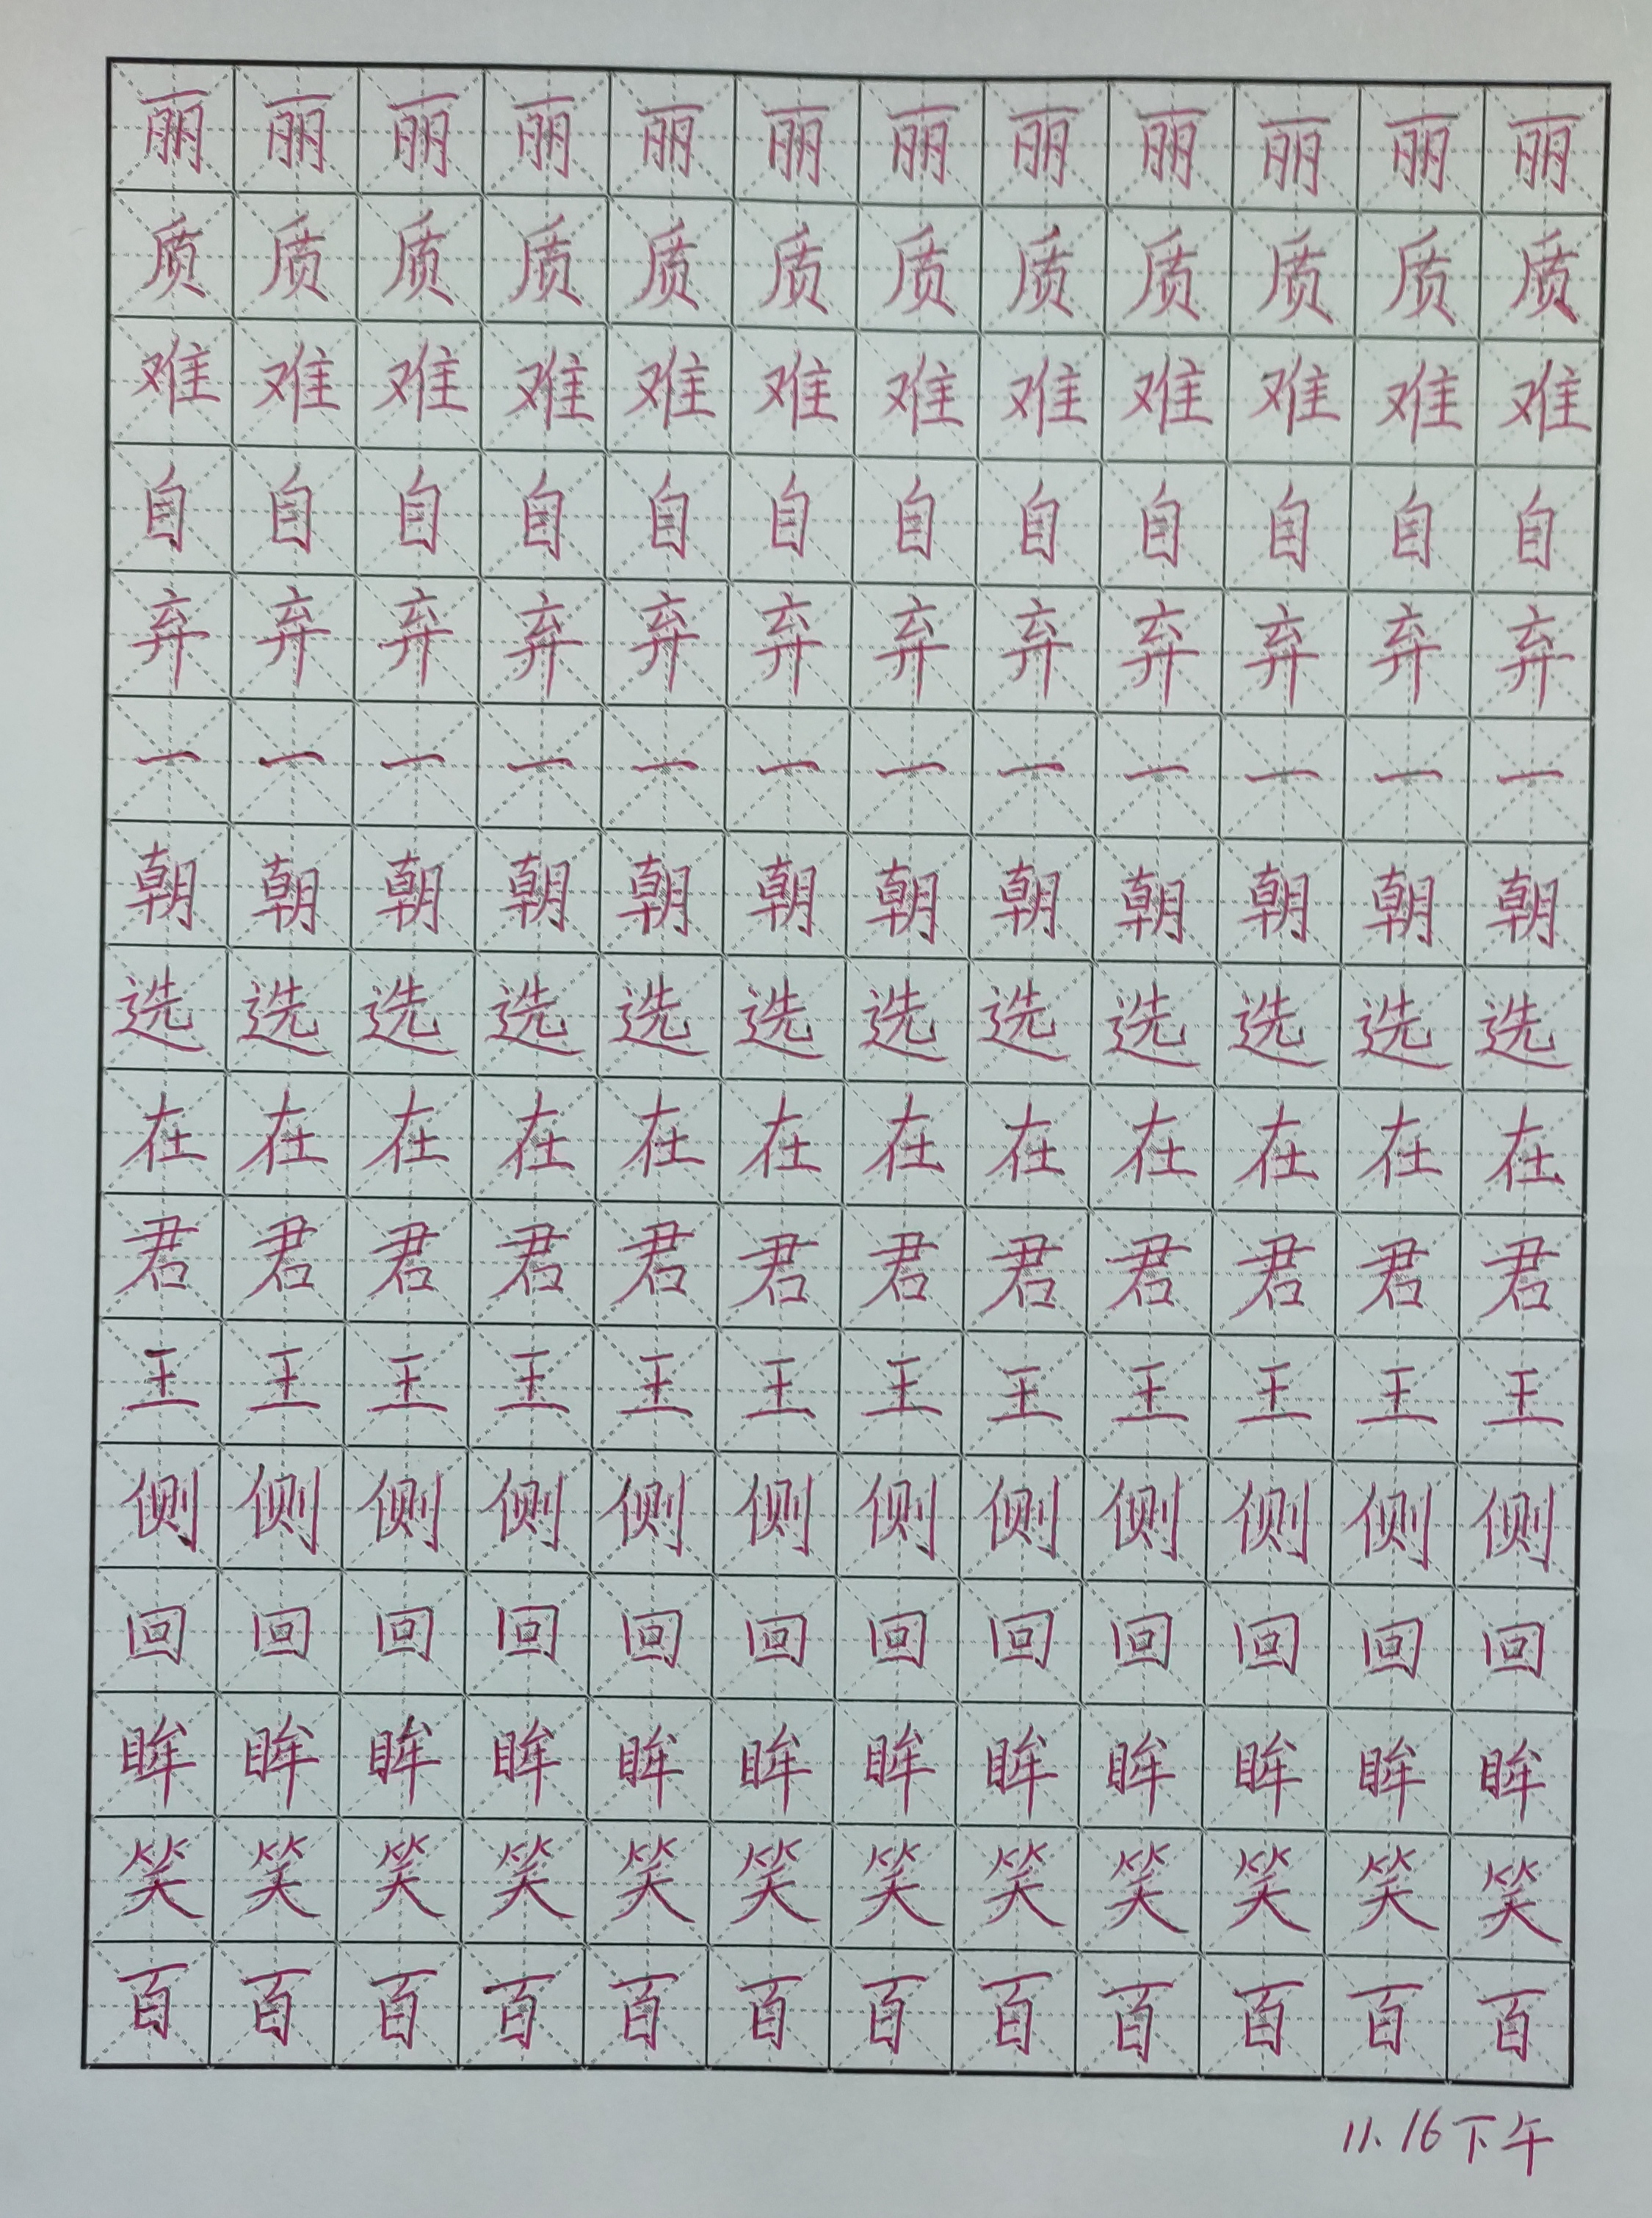 丽丽丽丽丽丽丽丽丽丽丽丽
质质质质质质质质质质质质
难难难难难难难难难难难难
自自自自自自自自自自自自
弃弃弃弃弃弃弃弃弃弃弃弃
一一一一一一一一一一一一
朝朝朝朝朝朝朝朝朝朝朝朝
选选选选选选选选选选选选
在在在在在在在在在在在在
君君君君君君君君君君君君
王王王王王王王王王王王王
侧侧侧侧侧侧侧侧侧侧侧侧
回回回回回回回回回回回回
眸眸眸眸眸眸眸眸眸眸眸眸
笑笑笑笑笑笑笑笑笑笑笑笑
百百百百百百百百百百百百
11.16下午